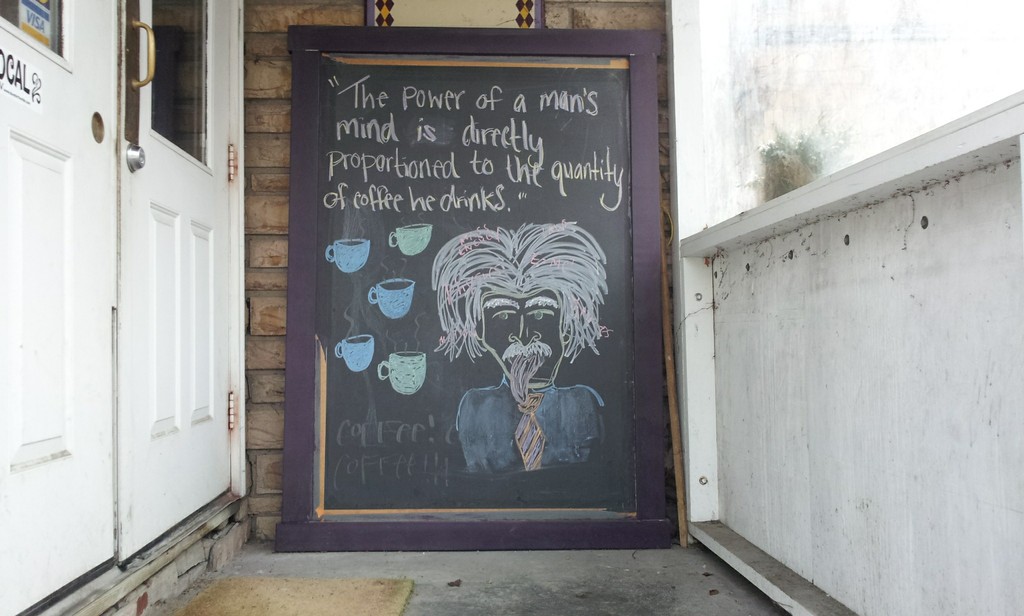 VISA
OCAL
"The power of a man's
mind is directly
proportioned to the quantity
of coffee he drinks."
COFFEE!
COFFEE!!